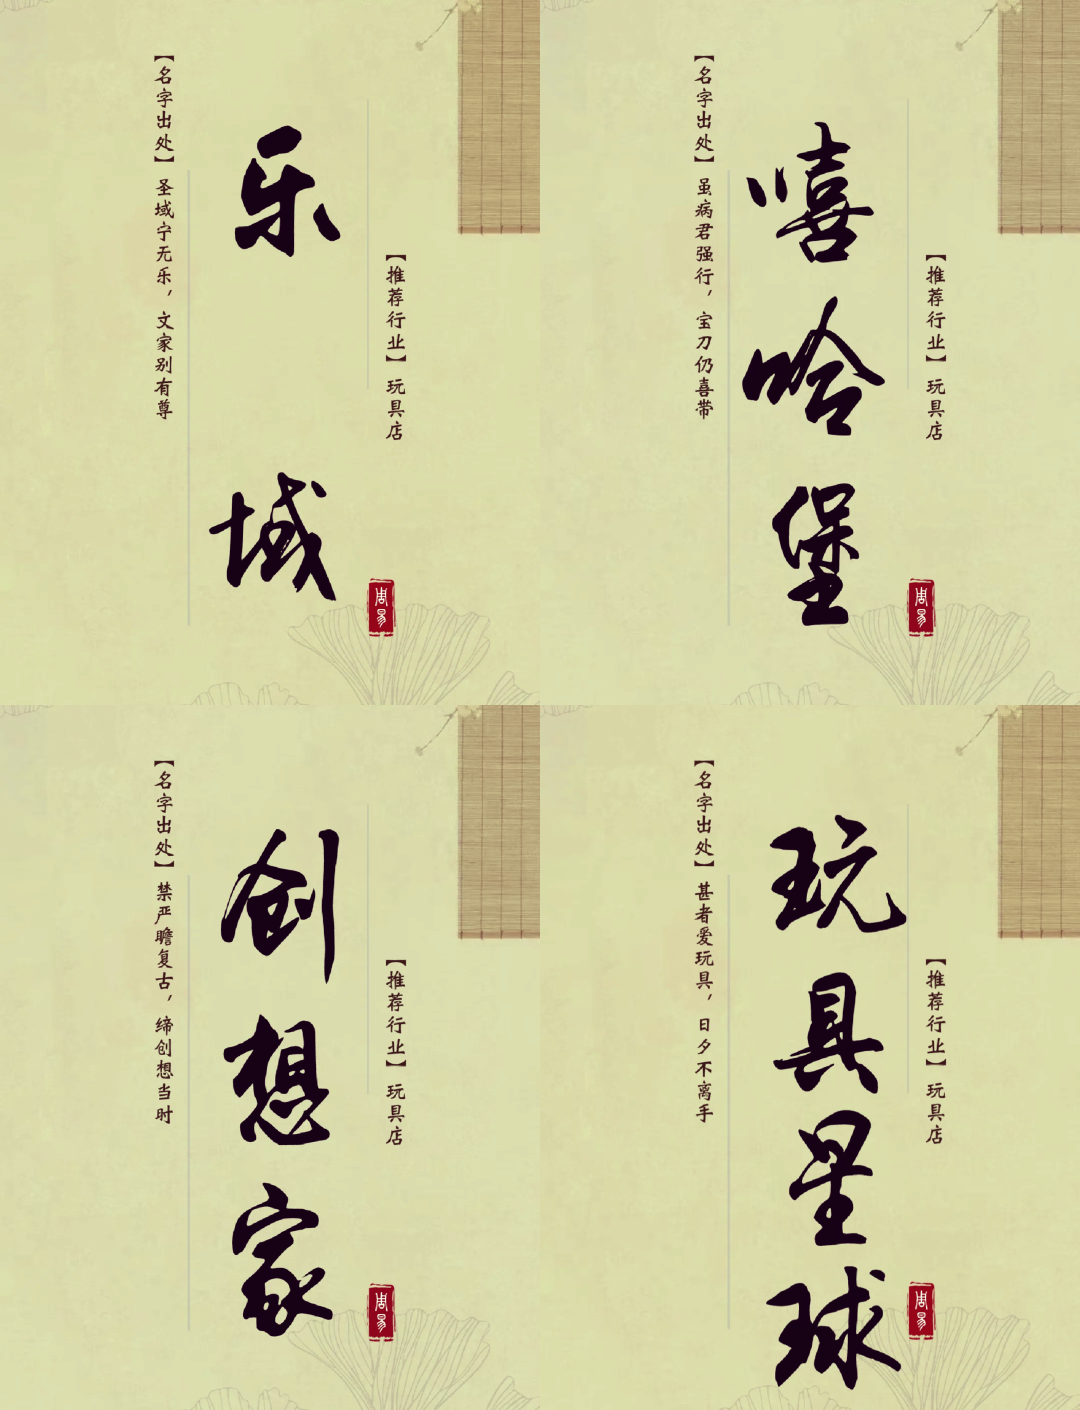 【推荐行业】玩具店
乐域
【名字出处】圣域宁无乐，文家别有尊
周易
【推荐行业】玩具店
嘻哈堡
【名字出处】虽病君强行，宝刀仍喜带
周易
【推荐行业】玩具店
创想家
【名字出处】禁严瞻复古，缔创想当时
周易
【推荐行业】玩具店
玩具星球
【名字出处】甚者爱玩具，日夕不离手
周易